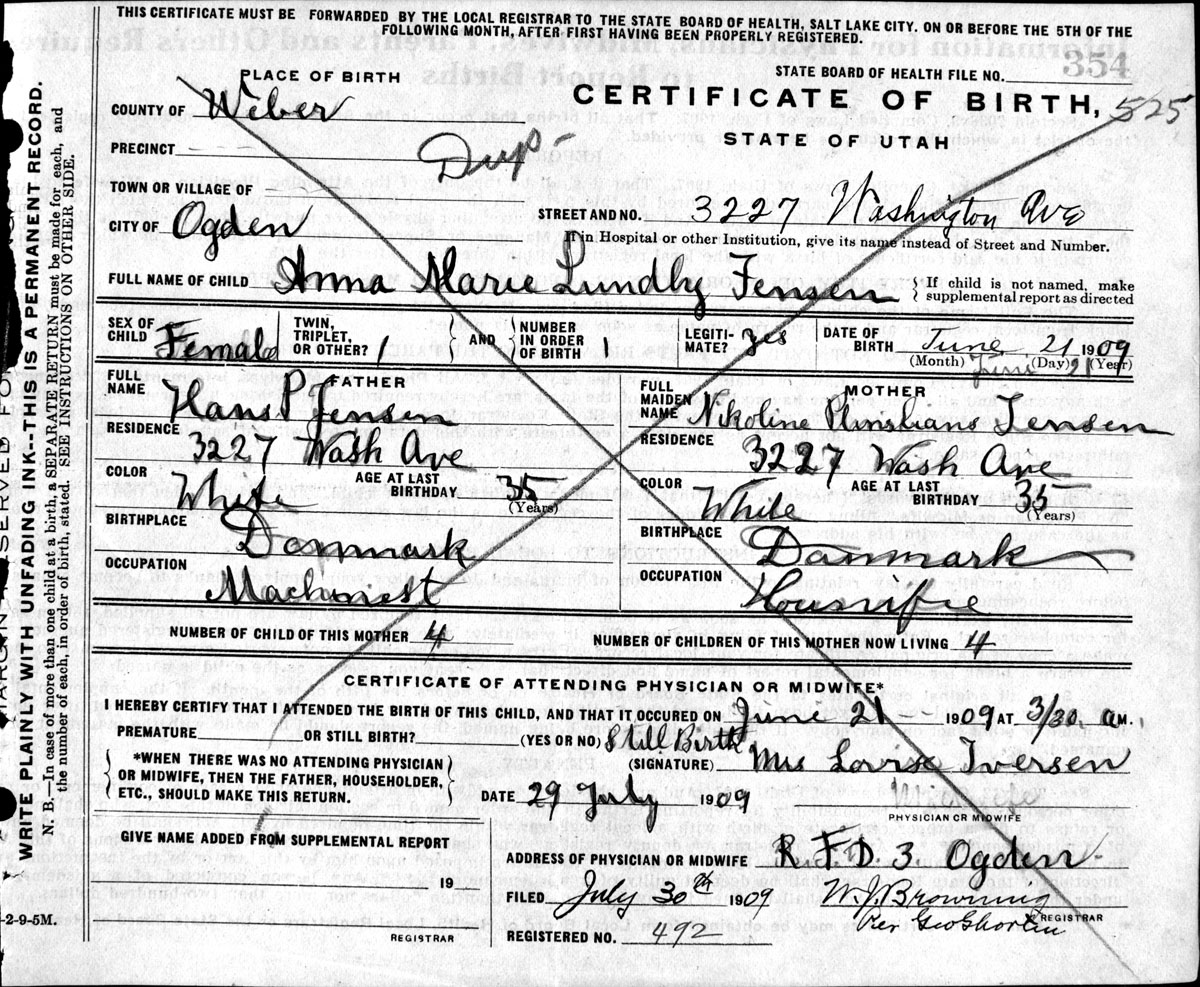 THIS CERTIFICATE MUST BE FORWARDED BY THE LOCAL REGISTRAR TO THE STATE BOARD OF HEALTH, SALT LAKE CITY. ON OR BEFORE THE 5TH OF THE
FOLLOWING MONTH, AFTER FIRST HAVING BEEN PROPERLY REGISTERED.
354
PLACE OF BIRTH
STATE BOARD OF HEALTH FILE NO.
COUNTY OF Weber
CERTIFICATE OF BIRTH, 525
STATE OF UTAH
PRECINCT
Dup
TOWN OR VILLAGE OF
CITY OF Ogden
STREET AND NO. 3227 Washington Ave
If in Hospital or other Institution, give its name instead of Street and Number.
FULL NAME OF CHILD Anna Marie Lundby Jensen { If child is not named, make
supplemental report as directed
SEX OF CHILD Female
TWIN, TRIPLET, OR OTHER? 1
AND
NUMBER IN ORDER OF BIRTH 1
LEGITIMATE? yes
DATE OF BIRTH June 21 1909
(Month) June (Day) 21 (Year)
FATHER
FULL NAME Hans P Jensen
RESIDENCE 3227 Wash Ave
COLOR White
AGE AT LAST BIRTHDAY 35 (Years)
BIRTHPLACE Danmark
OCCUPATION Machinest
MOTHER
FULL MAIDEN NAME Nikoline Jensen
RESIDENCE 3227 Wash Ave
COLOR White
AGE AT LAST BIRTHDAY 35 (Years)
BIRTHPLACE Danmark
OCCUPATION
NUMBER OF CHILD OF THIS MOTHER 4
NUMBER OF CHILDREN OF THIS MOTHER NOW LIVING 4
CERTIFICATE OF ATTENDING PHYSICIAN OR MIDWIFE*
I HEREBY CERTIFY THAT I ATTENDED THE BIRTH OF THIS CHILD, AND THAT IT OCCURED ON June 21 1909 AT 3/30 a.M.
PREMATURE OR STILL BIRTH? (YES OR NO) Still Birth
*WHEN THERE WAS NO ATTENDING PHYSICIAN
OR MIDWIFE, THEN THE FATHER, HOUSEHOLDER,
ETC., SHOULD MAKE THIS RETURN.
(SIGNATURE) Mrs Lovise Iversen
DATE 29 July 1909
Midwife
PHYSICIAN OR MIDWIFE
GIVE NAME ADDED FROM SUPPLEMENTAL REPORT
19
REGISTRAR
ADDRESS OF PHYSICIAN OR MIDWIFE R.F.D. 3. Ogden
FILED July 30th 1909
W.J. Browning
REGISTRAR
Per Geo
REGISTERED NO. 492
2-9-5M.
WRITE PLAINLY WITH UNFADING INK--THIS IS A PERMANENT RECORD.
N. B.—In case of more than one child at a birth, a SEPARATE RETURN must be made for each, and
the number of each, in order of birth, stated. SEE INSTRUCTIONS ON OTHER SIDE.